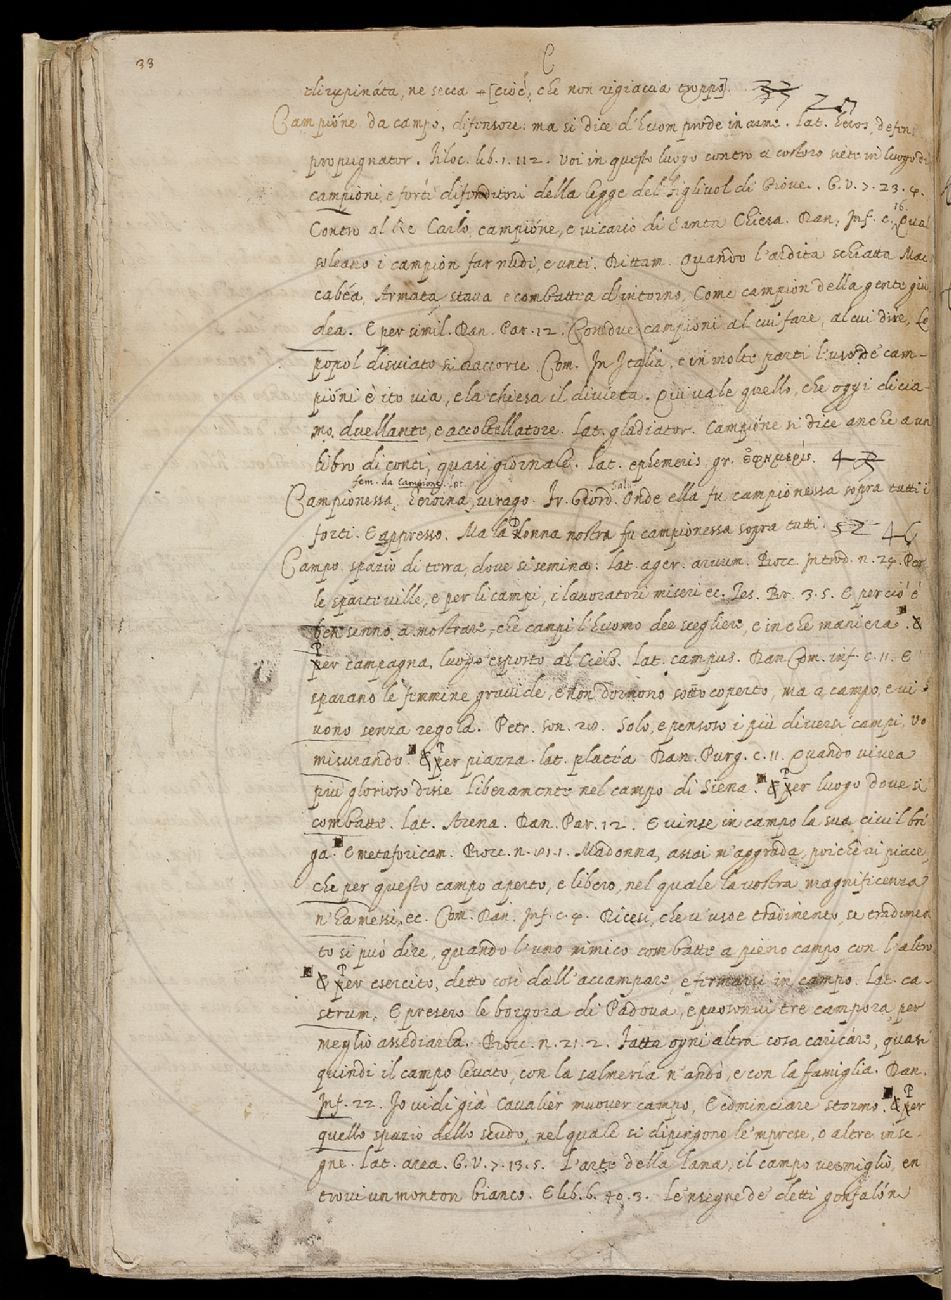 33
C
ne secca + [cioè, che non rigiaccia troppo]
Campióne da campo, difensore: ma si dice d'huom prode in arme. Lat. heros, defens
propugnator. Filoc. lib. 1. 112. Voi in questo luogo contro a costoro siete in luogo di
campióni, e forti difenditori della legge del figliuol di Giove. G. V. 7. 23. 4.
Contro al Re Carlo, campióne, e vicario di santa Chiesa. Dan. Inf. c. 16. Qual
soleano i campion far nudi, e unti. Dittam. Quando l'ardita schiatta Mac
cabéa, Armata stava e combattea d'intorno, Come campion della gente giu
dea. E per simil. Dan. Par. 12. Con due campioni al cui fare, al cui dire, Lo
popol disviato si raccorse. Com. In Italia, e in molte parti l'uso de' cam-
pióni è ito via, e la chiesa il divieta. Qui vale quello, che oggi dicia-
mo, duellante, e accoltellatore. Lat. gladiator. Campióne si dice anche a un
libro di conti, quasi giornale. lat. ephemeris, gr. ἐφημερίς. 42
fem. da Campione. lat. Sal.
Campionessa, Eroina, virago. Fr. Giord. Onde ella fu campionessa sopra tutti i
forti. E appresso. Ma la donna nostra fu campionessa sopra tutti. 52 46
Campo, spazio di terra, dove si semina: lat. ager. arvum. Bocc. Introd. n. 24. Per
le sparte ville, e per li campi, i lavoratori miseri ec. Tes. Br. 3. 5. E perciò è
ben senno a mostrare, che campi l'huomo dee scegliere, e in che maniera. &
per campagna, luogo esposto al cielo. lat. campus. Dan Com. inf. c. 11. E
sparano le femmine gravide, e non dormono sotto coperto, ma a campo, e vi
vono senza regola. Petr. son. 28. Solo, e pensoso i più diversi campi, Vo
misurando. & per piazza. lat. platéa Dan. Purg. c. 11. Quando vivea
più glorioso disse Liberamente nel campo di Siena. & per luogo dove si
combatte. lat. Arena. Dan. Par. 12. E vinse in campo la sua civil bri
ga. E metaforicam. Bocc. n. 81. 1. Madonna, assai m'aggrada, poiché vi piace,
che per questo campo aperto, e libero, nel quale la vostra magnificenza
n'ha messi, ec. Com. Dan. Inf. c. 4. Dicesi, che v'usoe tradimento, se tradimen
to si può dire, quando l'uno nimico combatte a pieno campo con l'altro
& per esercito, detto così dall'accampare, e fermarsi in campo. Lat. ca-
strum, E preseno le borgora di Padova, e puosonvi tre campora, per
meglio assediarla. Bocc. n. 21. 2. Fatta ogni altra cosa caricare, quasi
quindi il campo levato, con la salmeria n'andò, e con la famiglia. Dan.
Inf. 22. Io vidi già cavalier muover campo, E cominciare stormo. & per
quello spazio dello scudo, nel quale si dipingono le 'mprese, o altre inse-
gne. lat. area. G. V. 7. 13. 5. L'arte della lana, il campo vermiglio, en
trovi un monton bianco. E lib. 6. 40. 3. Le 'nsegne de' detti gonfalón